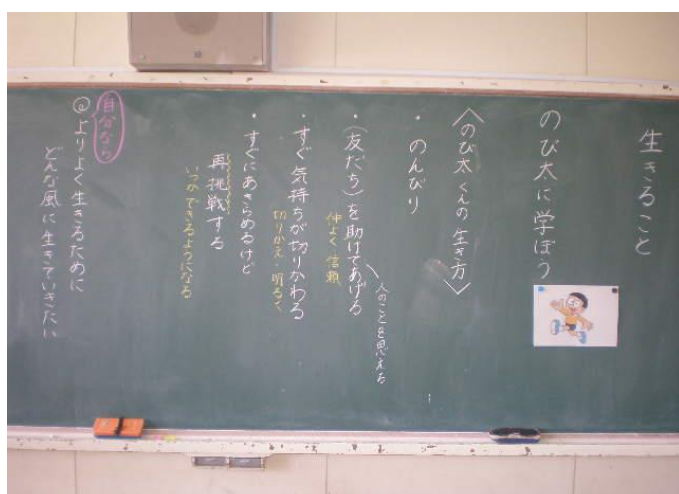 生きること
のび太に学ぼう
〈のび太くんの生き方〉
・のんびり
・(友だち)を助けてあげる
人のことを思える
仲よく信頼
・すぐ気持ちが切りかわる
切りかえ・明るく
・すぐにあきらめるけど
再挑戦する
いつかできるようになる
自分なら
@よりよく生きるために
どんな風に生きていきたい